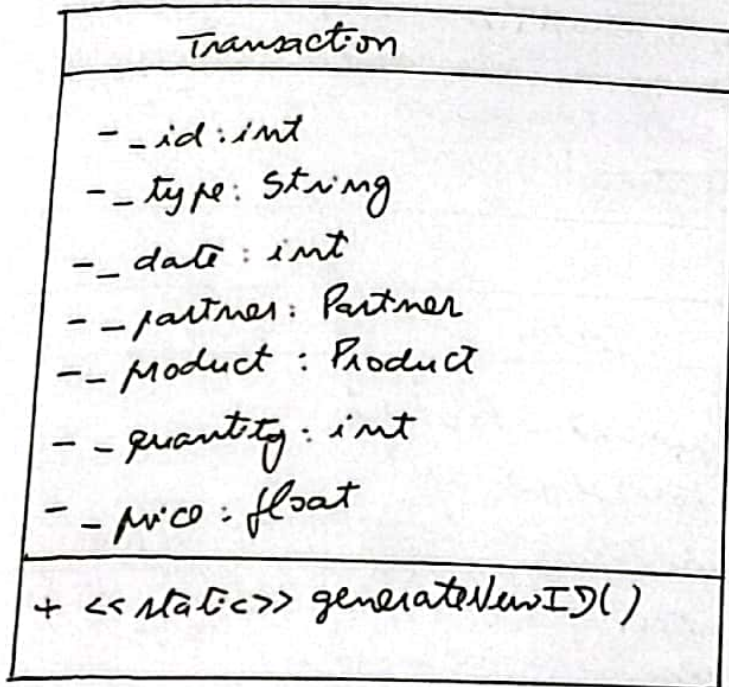 Transaction
- _id: int
- _type: String
- _date: int
- _partner: Partner
- _product: Product
- _quantity: int
- _price: float
+ <<static>> generateNewID()